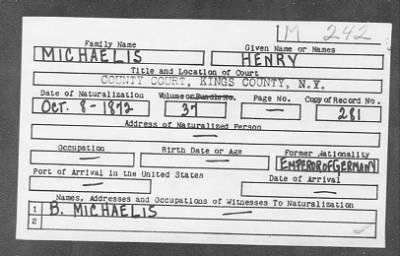 M 242
Family Name Given Name or Names
MICHAELIS HENRY
Title and Location of Court
COUNTY COURT, KINGS COUNTY, N.Y.
Date of Naturalization Volume or Bundle No. Page No. Copy of Record No.
OCT. 8-1872 37 — 281
Address of Naturalized Person
—
Occupation Birth Date or Age Former Nationality
— — EMPEROR OF GERMANY
Port of Arrival in the United States Date of Arrival
— —
Names, Addresses and Occupations of Witnesses To Naturalization
1 B. MICHAELIS —
2